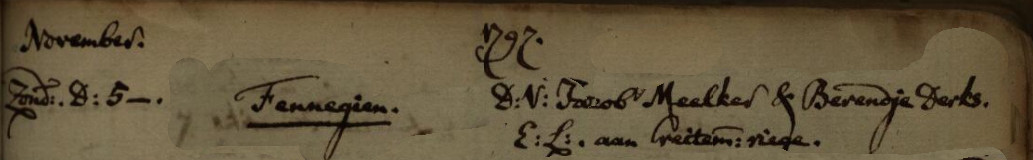 November. 1797.
Zond: D: 5 —. Fennegien. D: V: Jacob Meelker & Berendje Derks.
E: L:. aan reitem: riege.